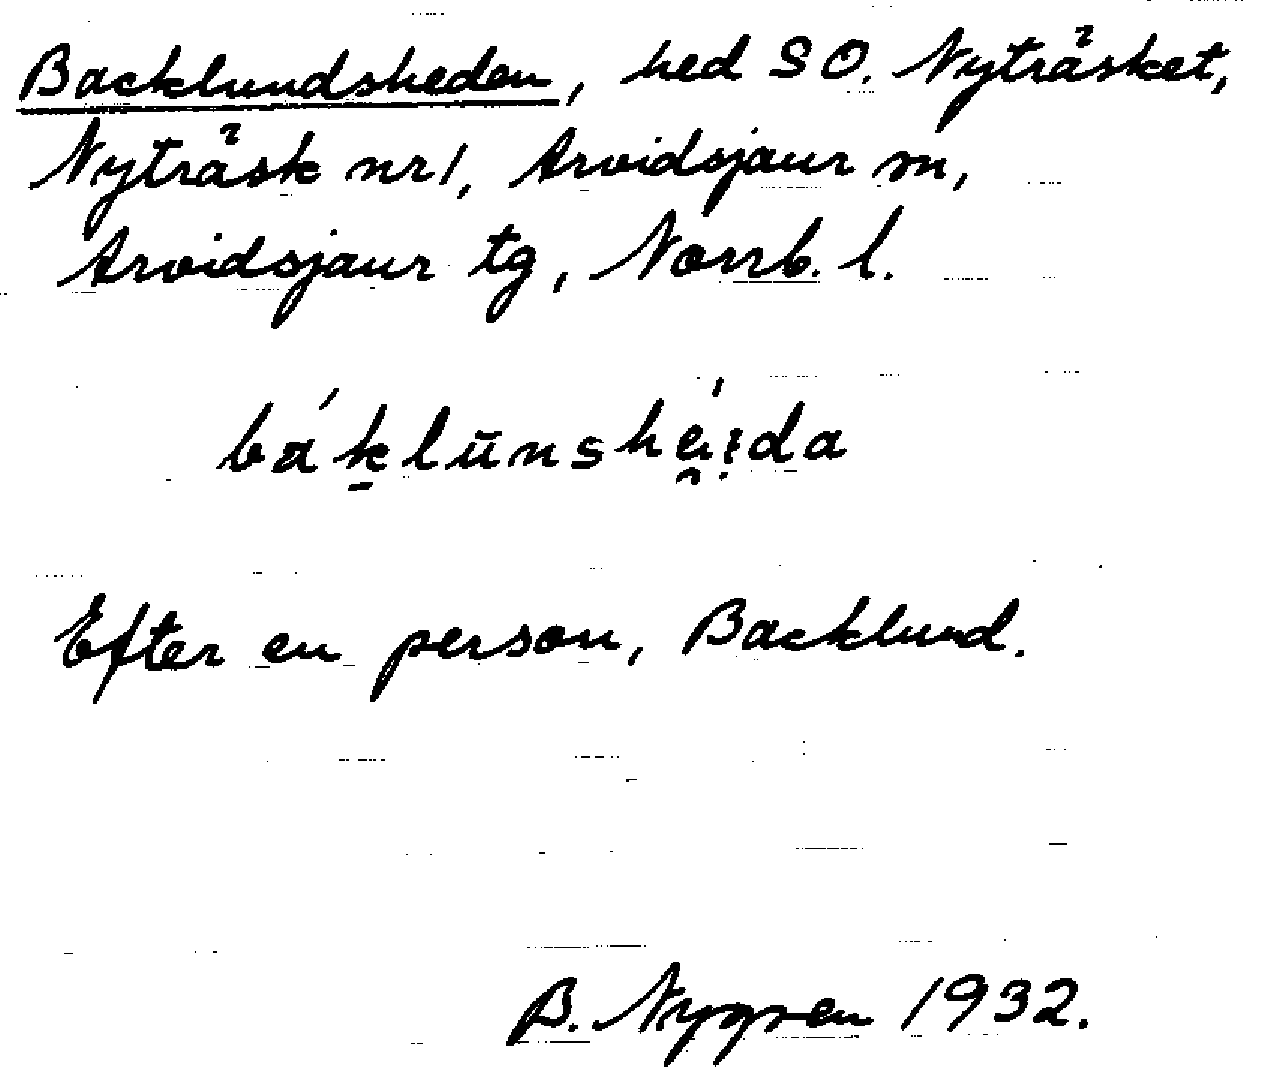 Backlundsheden, hed SO. Nyträsket,
Nyträsk nr 1, Arvidsjaur sn,
Arvidsjaur tg, Norrb. l.
Efter en person, Backlund.
B. Nygren 1932.